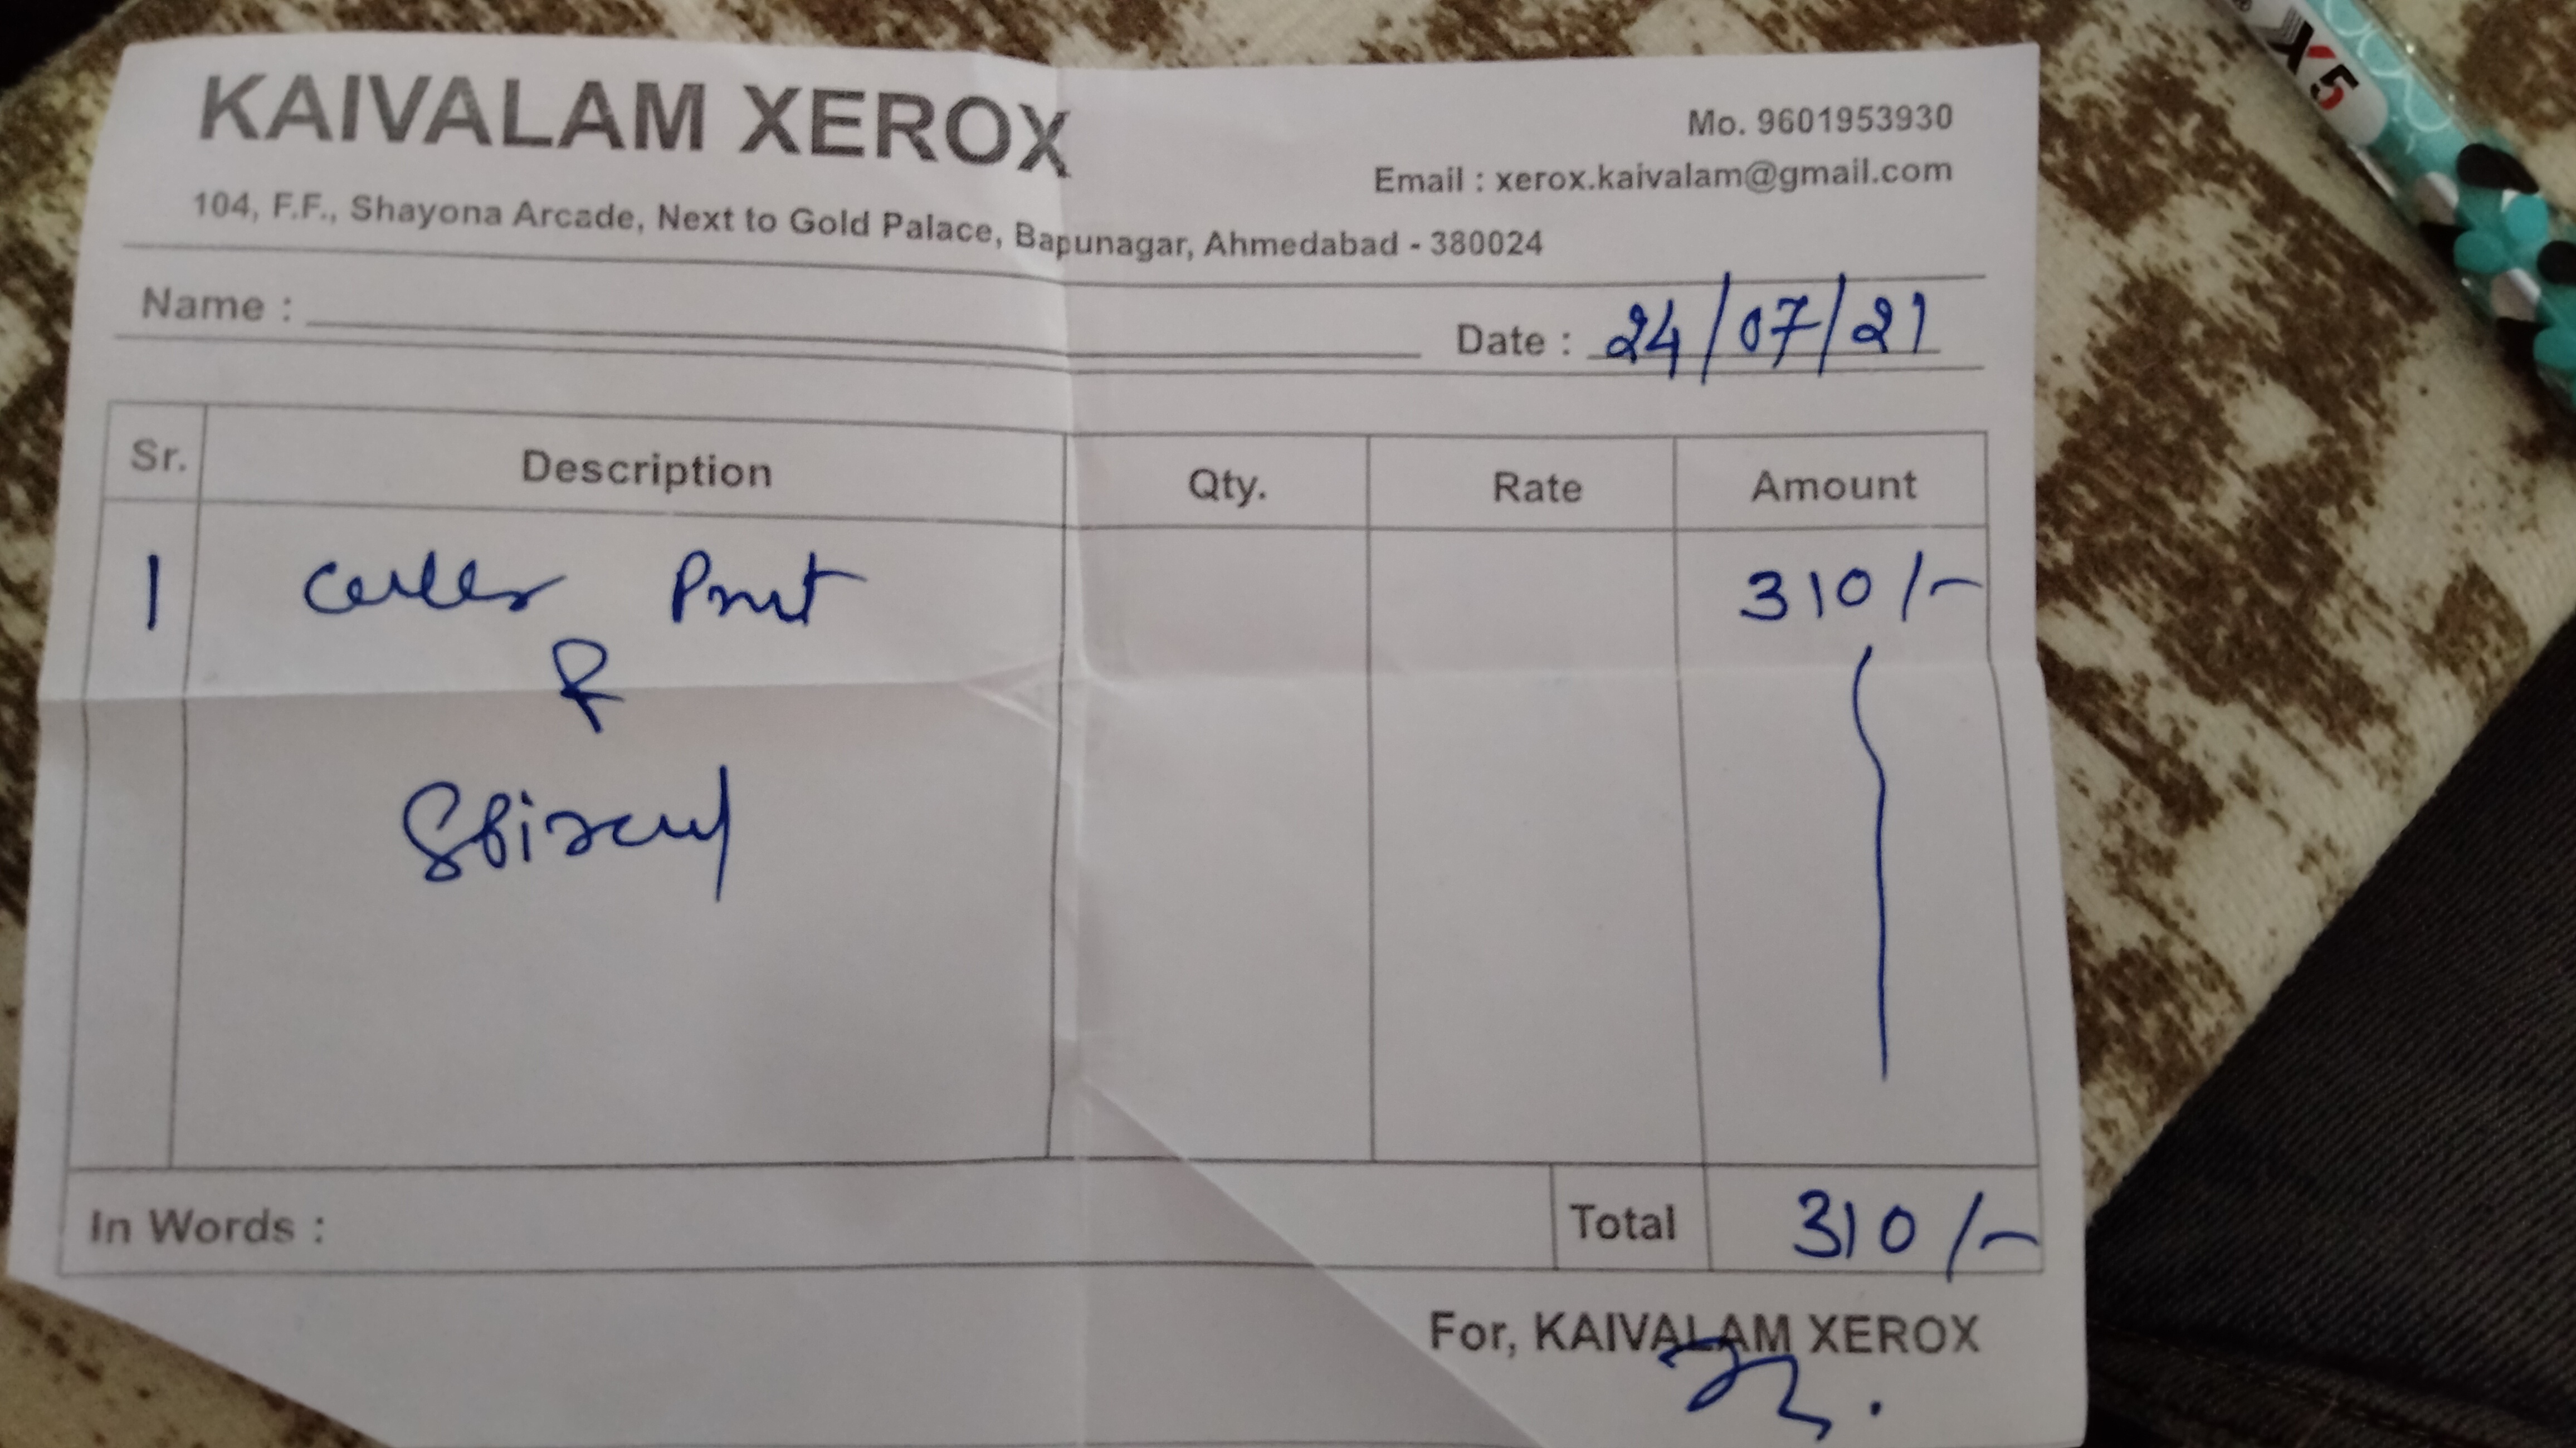 KAIVALAM XEROX
Mo. 9601953930
Email : xerox.kaivalam@gmail.com
104, F.F., Shayona Arcade, Next to Gold Palace, Bapunagar, Ahmedabad - 380024
Name :
Date : 24/07/21
Sr. Description Qty. Rate Amount
1 Print 310/-
&
In Words :
Total 310/-
For, KAIVALAM XEROX
X5